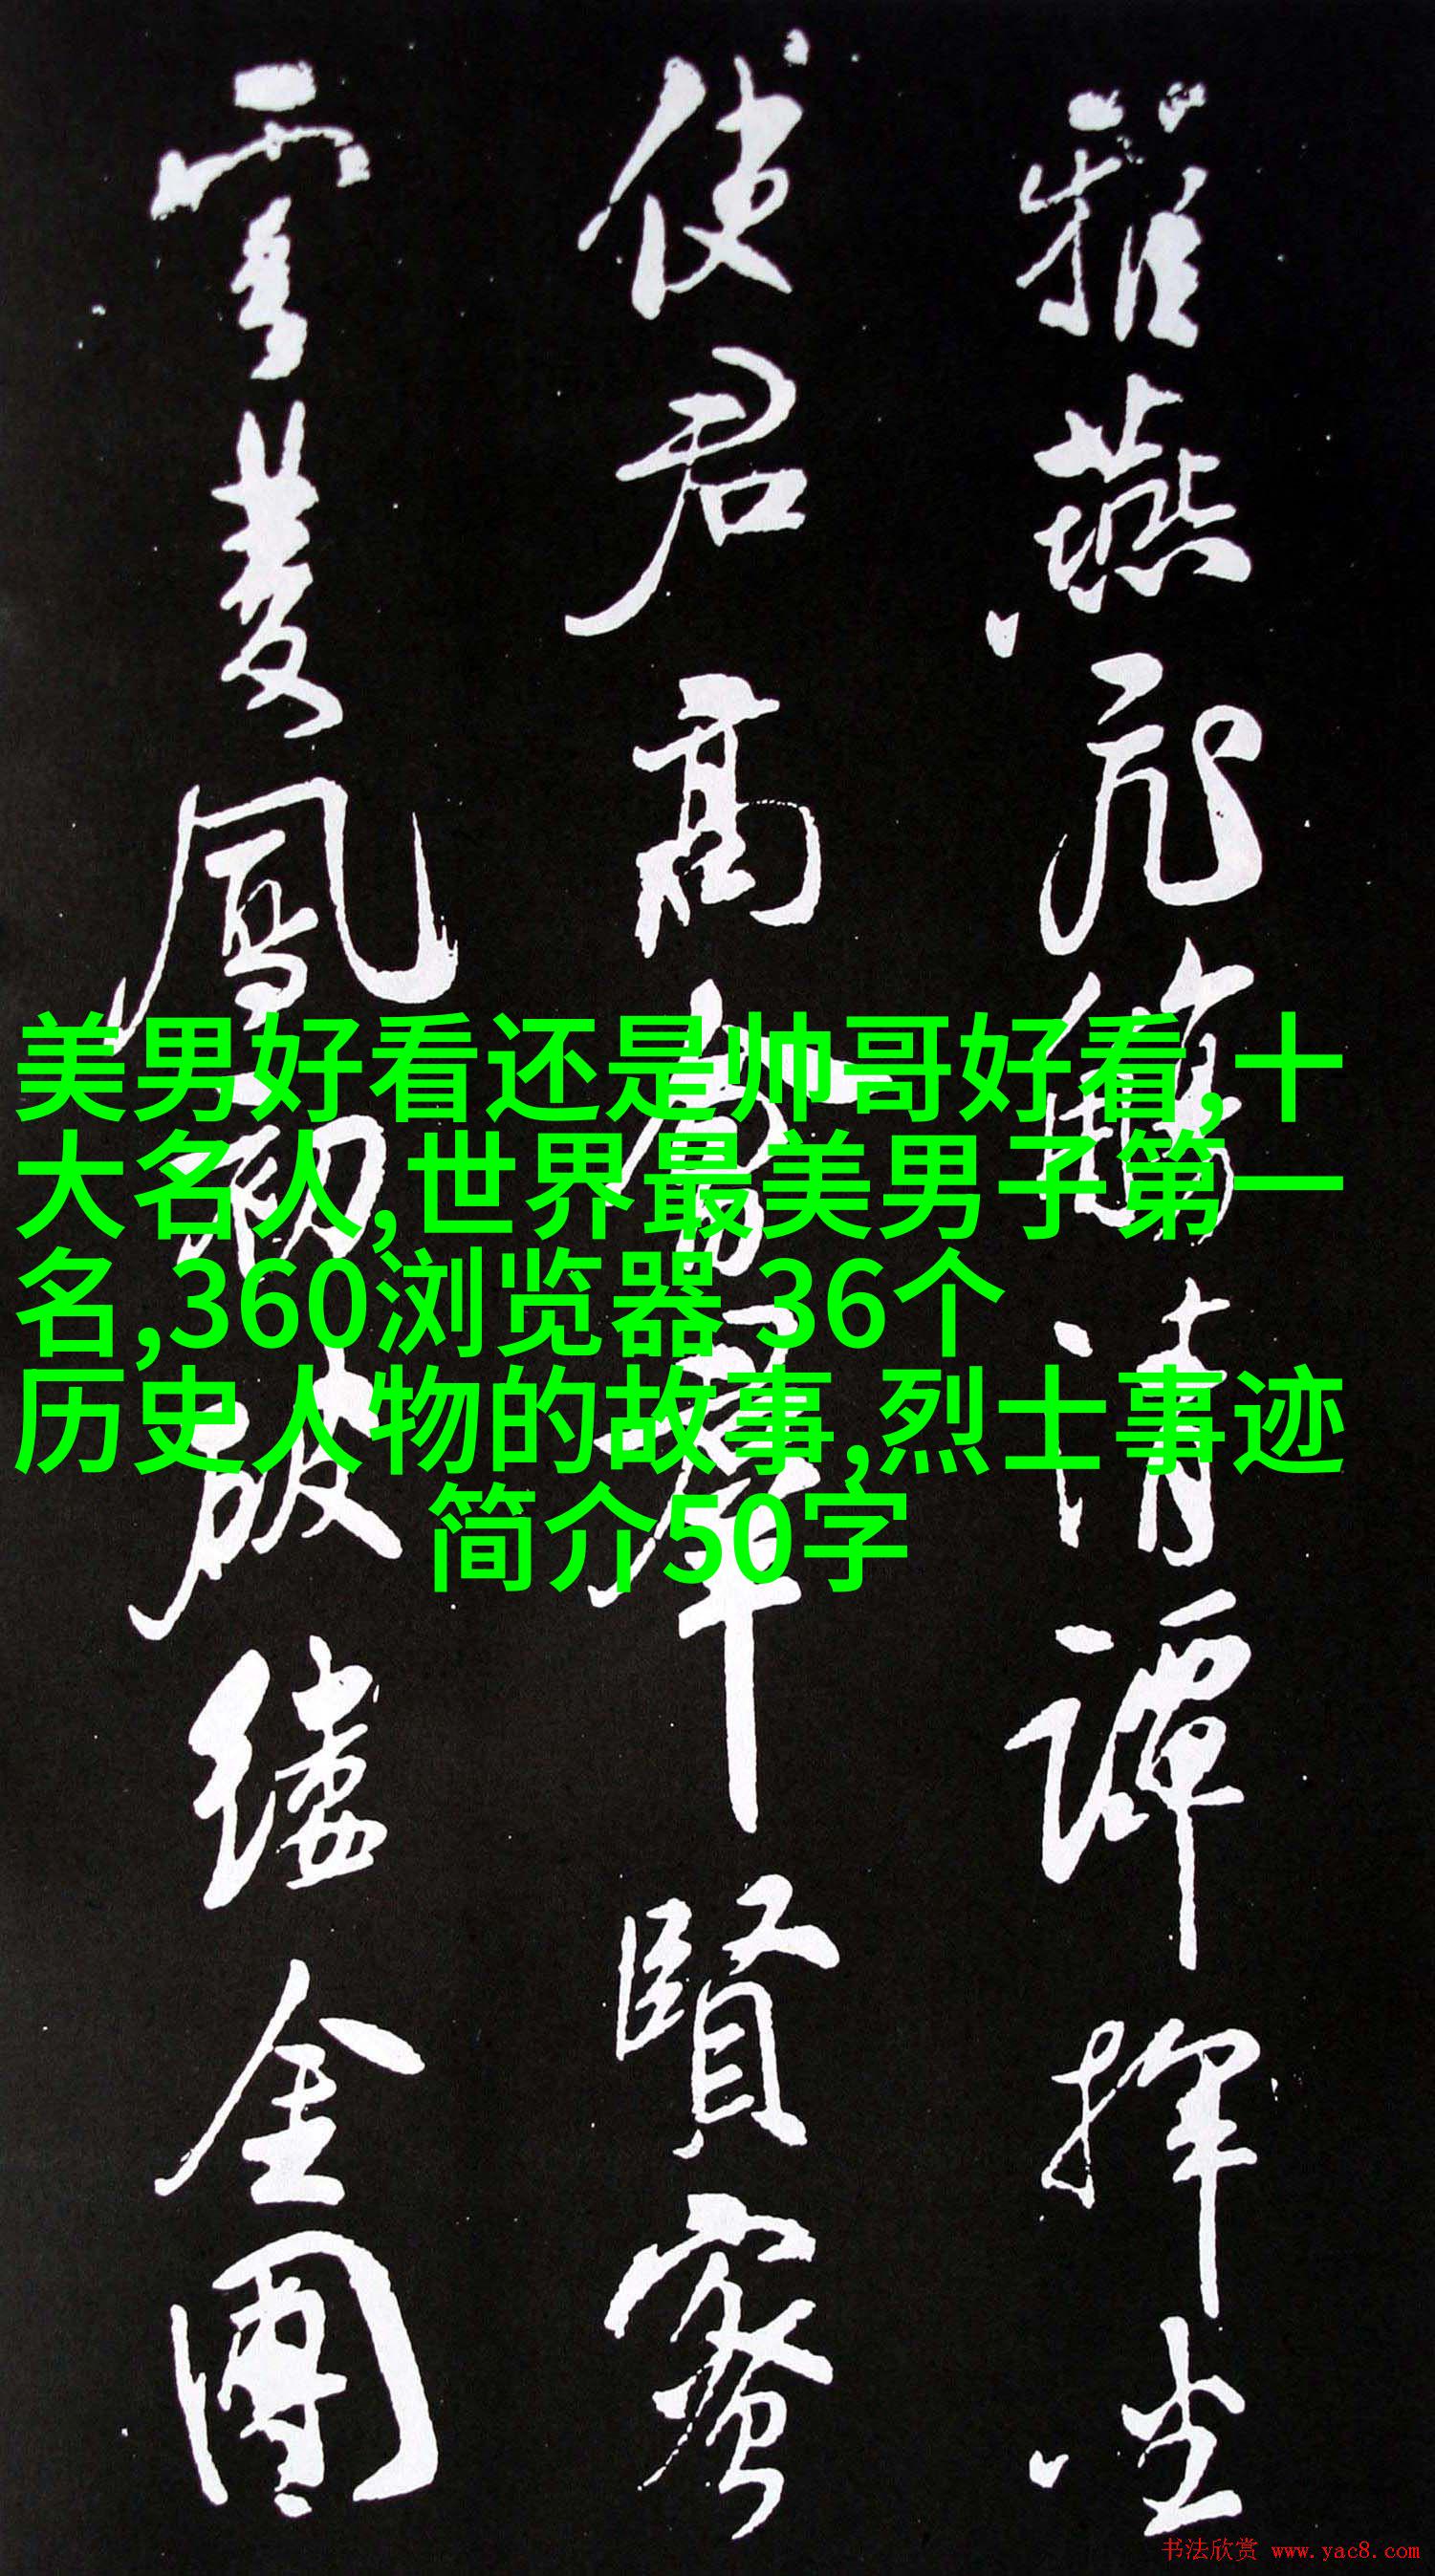 雅燕飛觴清譚揮坐
使君高會羣賢密
雲雙鳳初破縷金團
美男好看还是帅哥好看,十
大名人,世界最美男子第一
名,360浏览器 36个
历史人物的故事,烈士事迹
简介50字
书法欣赏 www.yac8.com